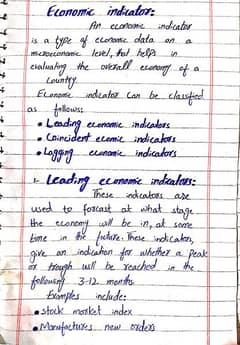 Economic indicator:
An economic indicator
is a type of economic data on a
microeconomic level, that helps in
evaluating the overall economy of a
Country.
Economic indicator can be classified
as follows:
• Leading economic indicators
• Coincident ecomic indicators
• Lagging economic indicators
1. Leading economic indicators:
These indicators are
used to forcast at what stage
the economy will be in, at some
time in the future. These indicators,
give an indication for whether a peak
or trough will be reached in the
following 3-12 months
Examples include:
• stock market index
• Manufactures new orders